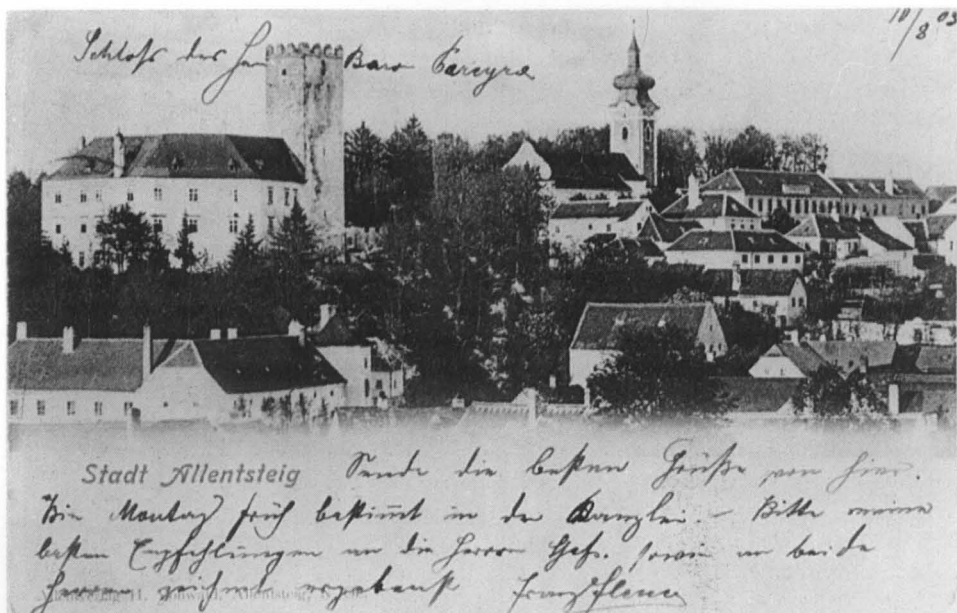 10/8 03
Schloss des Herrn Baron Pereyra
Stadt Allentsteig Sende die besten Grüße von hier.
Bin Montag früh bestimmt in der Kanzlei. – Bitte meine
besten Empfehlungen an die Herrn Chefs. sowie an beide
Herren zeichnet ergebenst Franz